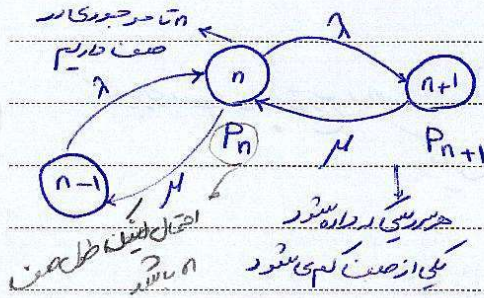 n تا موجودی در
صف داریم
λ
n
λ
n+1
n-1
μ
Pn
μ
Pn+1
احتمال اینکه طول صف
n باشد
هر سرویسی که داده شود
یکی از صف کم می شود